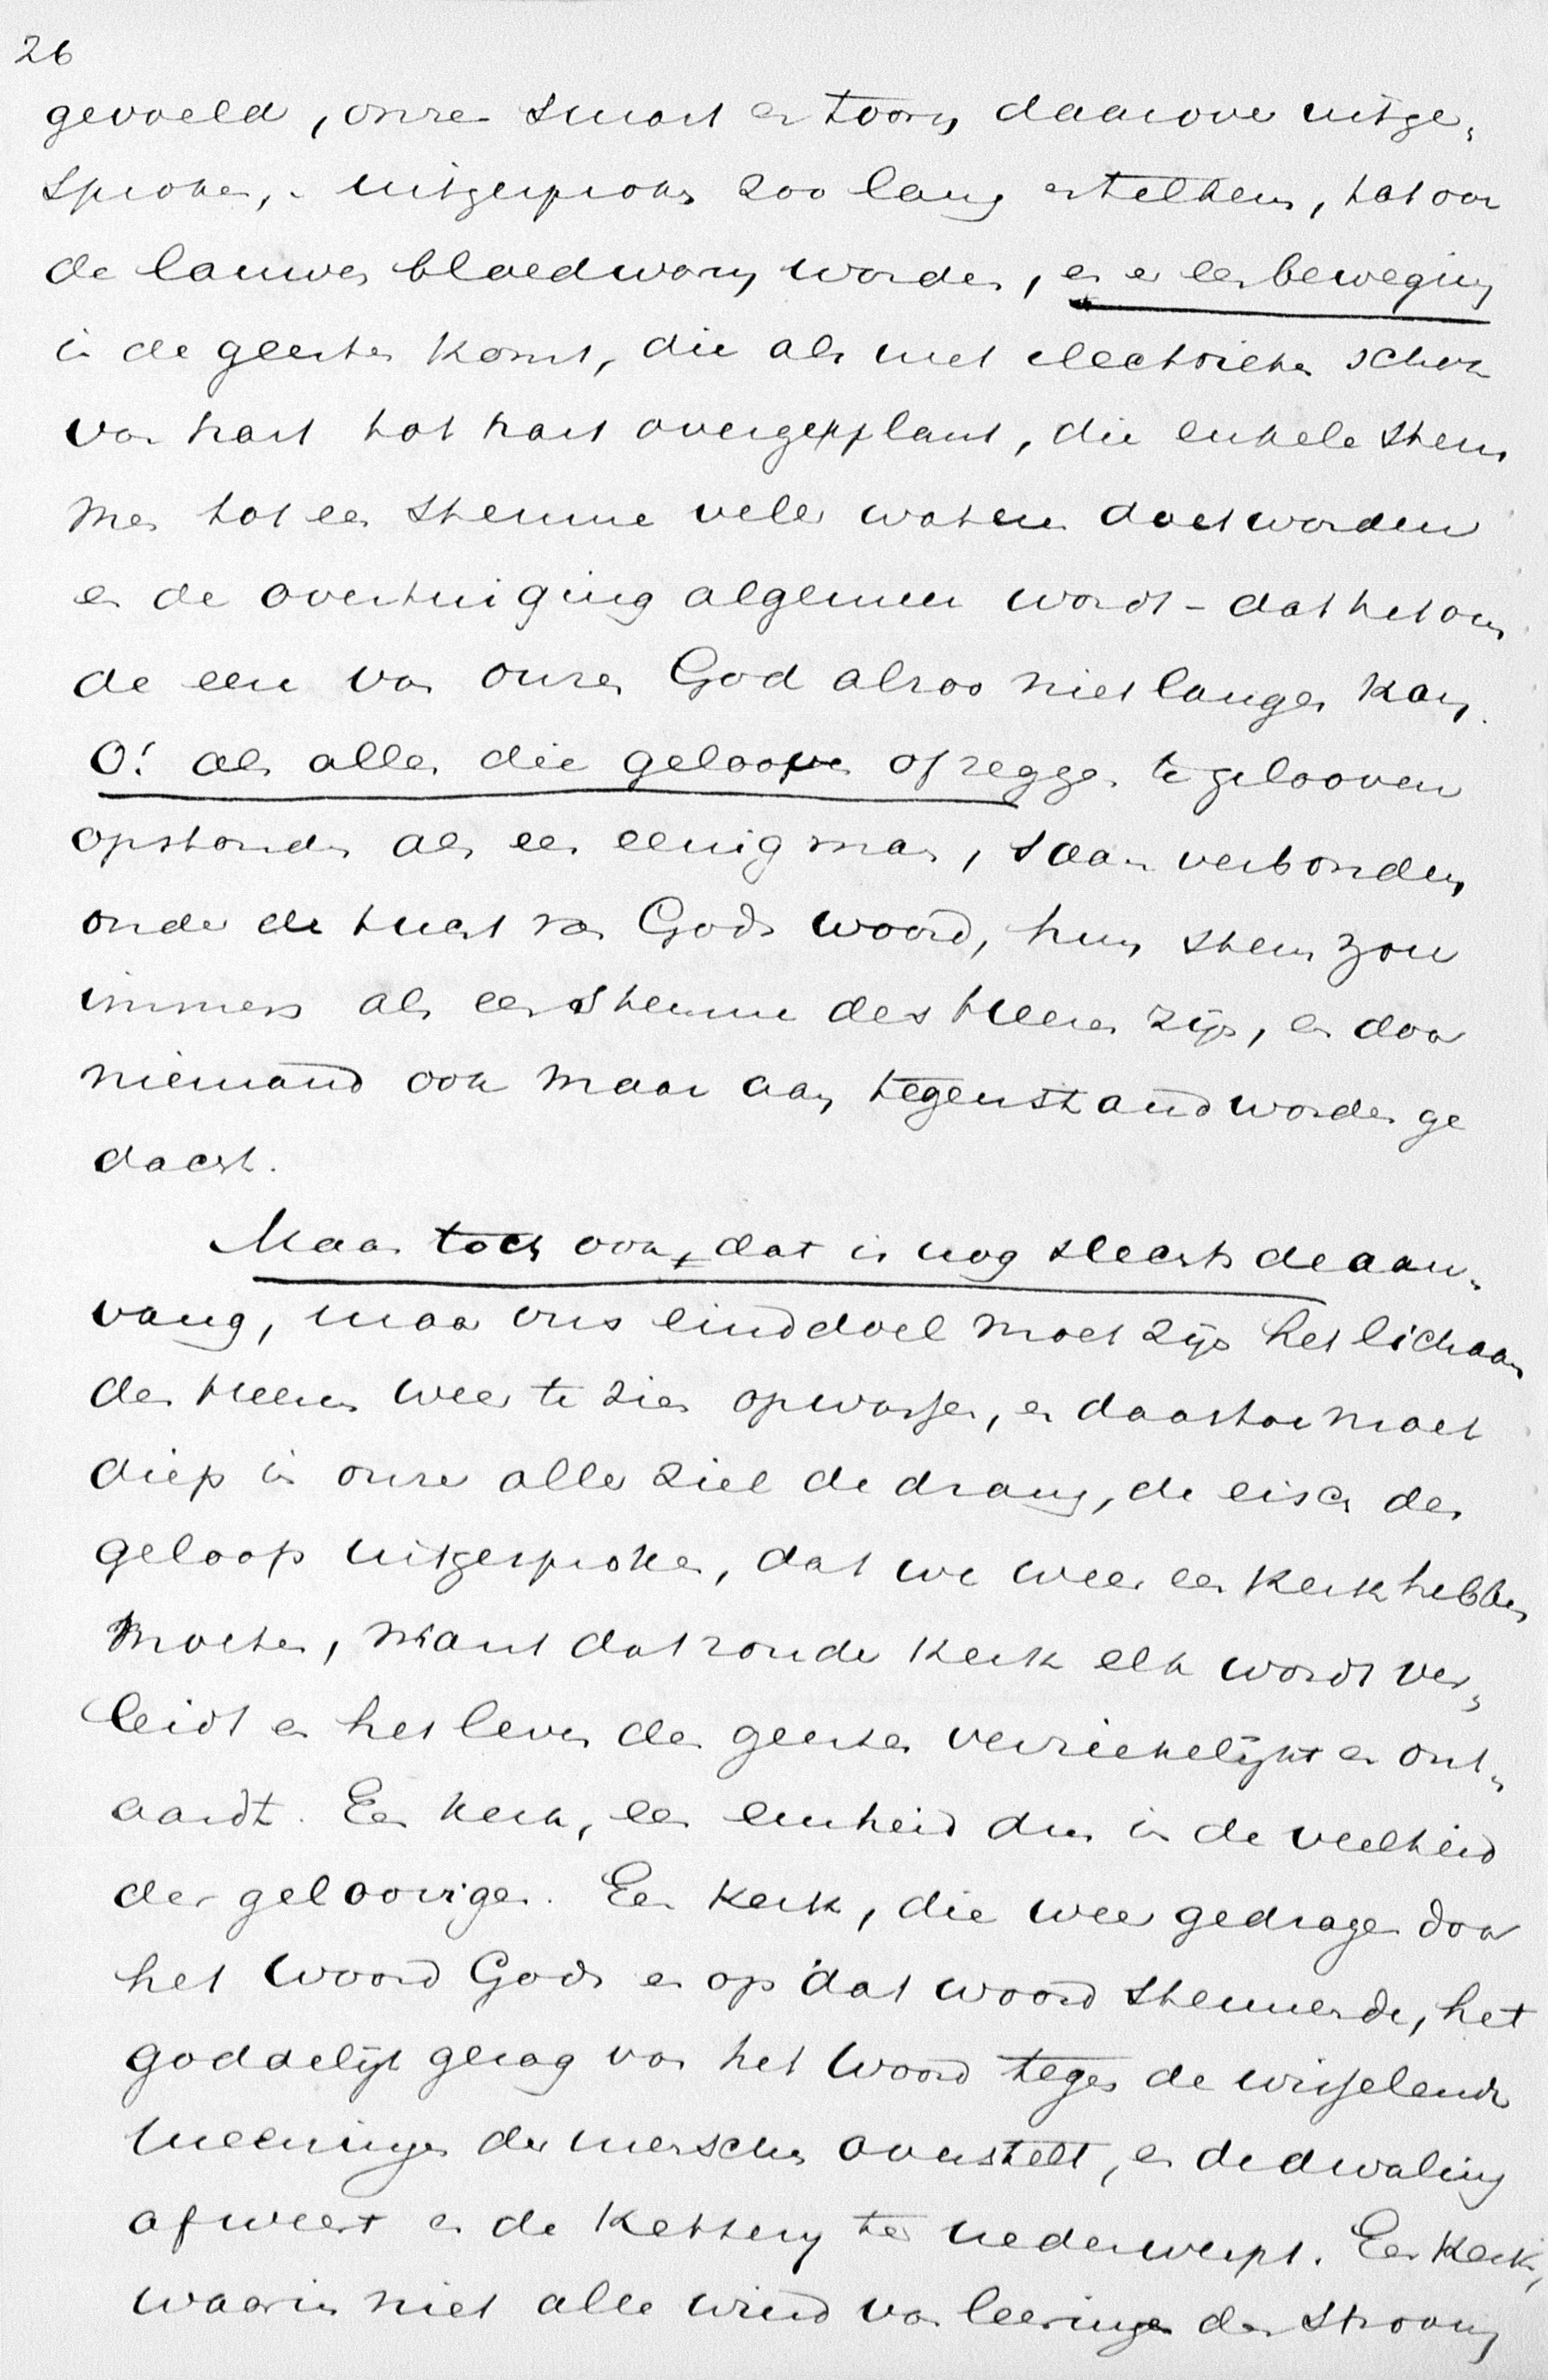 26
gevoeld, onze smart en toorn daarover uitge-
sproken, - uitgesproken zoo lang en telkens, tot ook
de lauwen bloedwarm worden, en er een beweging
in de geesten komt, die als met electrischen schok
van hart tot hart overgeplant, die enkele stem
men tot een stemme veler wateren doet worden
en de overtuiging algemeen wordt - dat het om
de eer van onzen God alzoo niet langer kan.
O! als allen die gelooven of zeggen te gelooven
opstonden als een eenig man, saam verbonden
onder de tucht van Gods woord, hun stem zou
immers als een stemme des Heeren zijn, en door
niemand ook maar aan tegenstand worden ge
dacht.
Maar toch ook, dat is nog slechts de aan-
vang, maar ons einddoel moet zijn het lichaam
des Heeren weer te zien opwassen, en daartoe moet
diep in onze aller ziel de drang, de eisch des
geloofs uitgesproken, dat we weer een kerk hebben
moeten, want dat zonder kerk elk wordt ver-
leidt en het leven der geesten verziekelijkt en ont-
aardt. Een kerk, een eenheid dus in de veelheid
der geloovigen. Een kerk, die weer gedragen door
het woord Gods en op dat woord steunende, het
goddelijk gezag van het Woord tegen de wisselende
meeningen der menschen overstelt, en de dwaling
afweert en de ketterij ter nederwerpt. Een Kerk,
waarin niet alle wind van leeringen den stroom